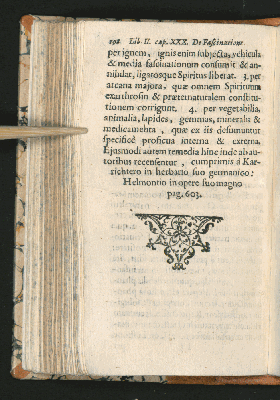 192 Lib. II. cap. XXX. De Fascinatione.
per ignem, ignis enim subjecta, vehicula
& media fascinationum consumit & an-
nihilat, ligatosque Spiritus liberat. 3. per
arcana majora, quæ omnem Spirituum
exauthrosin & præternaturalem constitu-
tionem corrigunt. 4. per vegetabilia,
animalia, lapides, gemmas, materialia &
medicamenta, quæ ex iis desumuntur
specificè proficua interna & externa.
Ejusmodi autem remedia hinc inde ab au-
toribus recensentur, cumprimis à Kar-
richtero in herbario suo germanico:
Helmontio in opere suo magno
pag. 603.